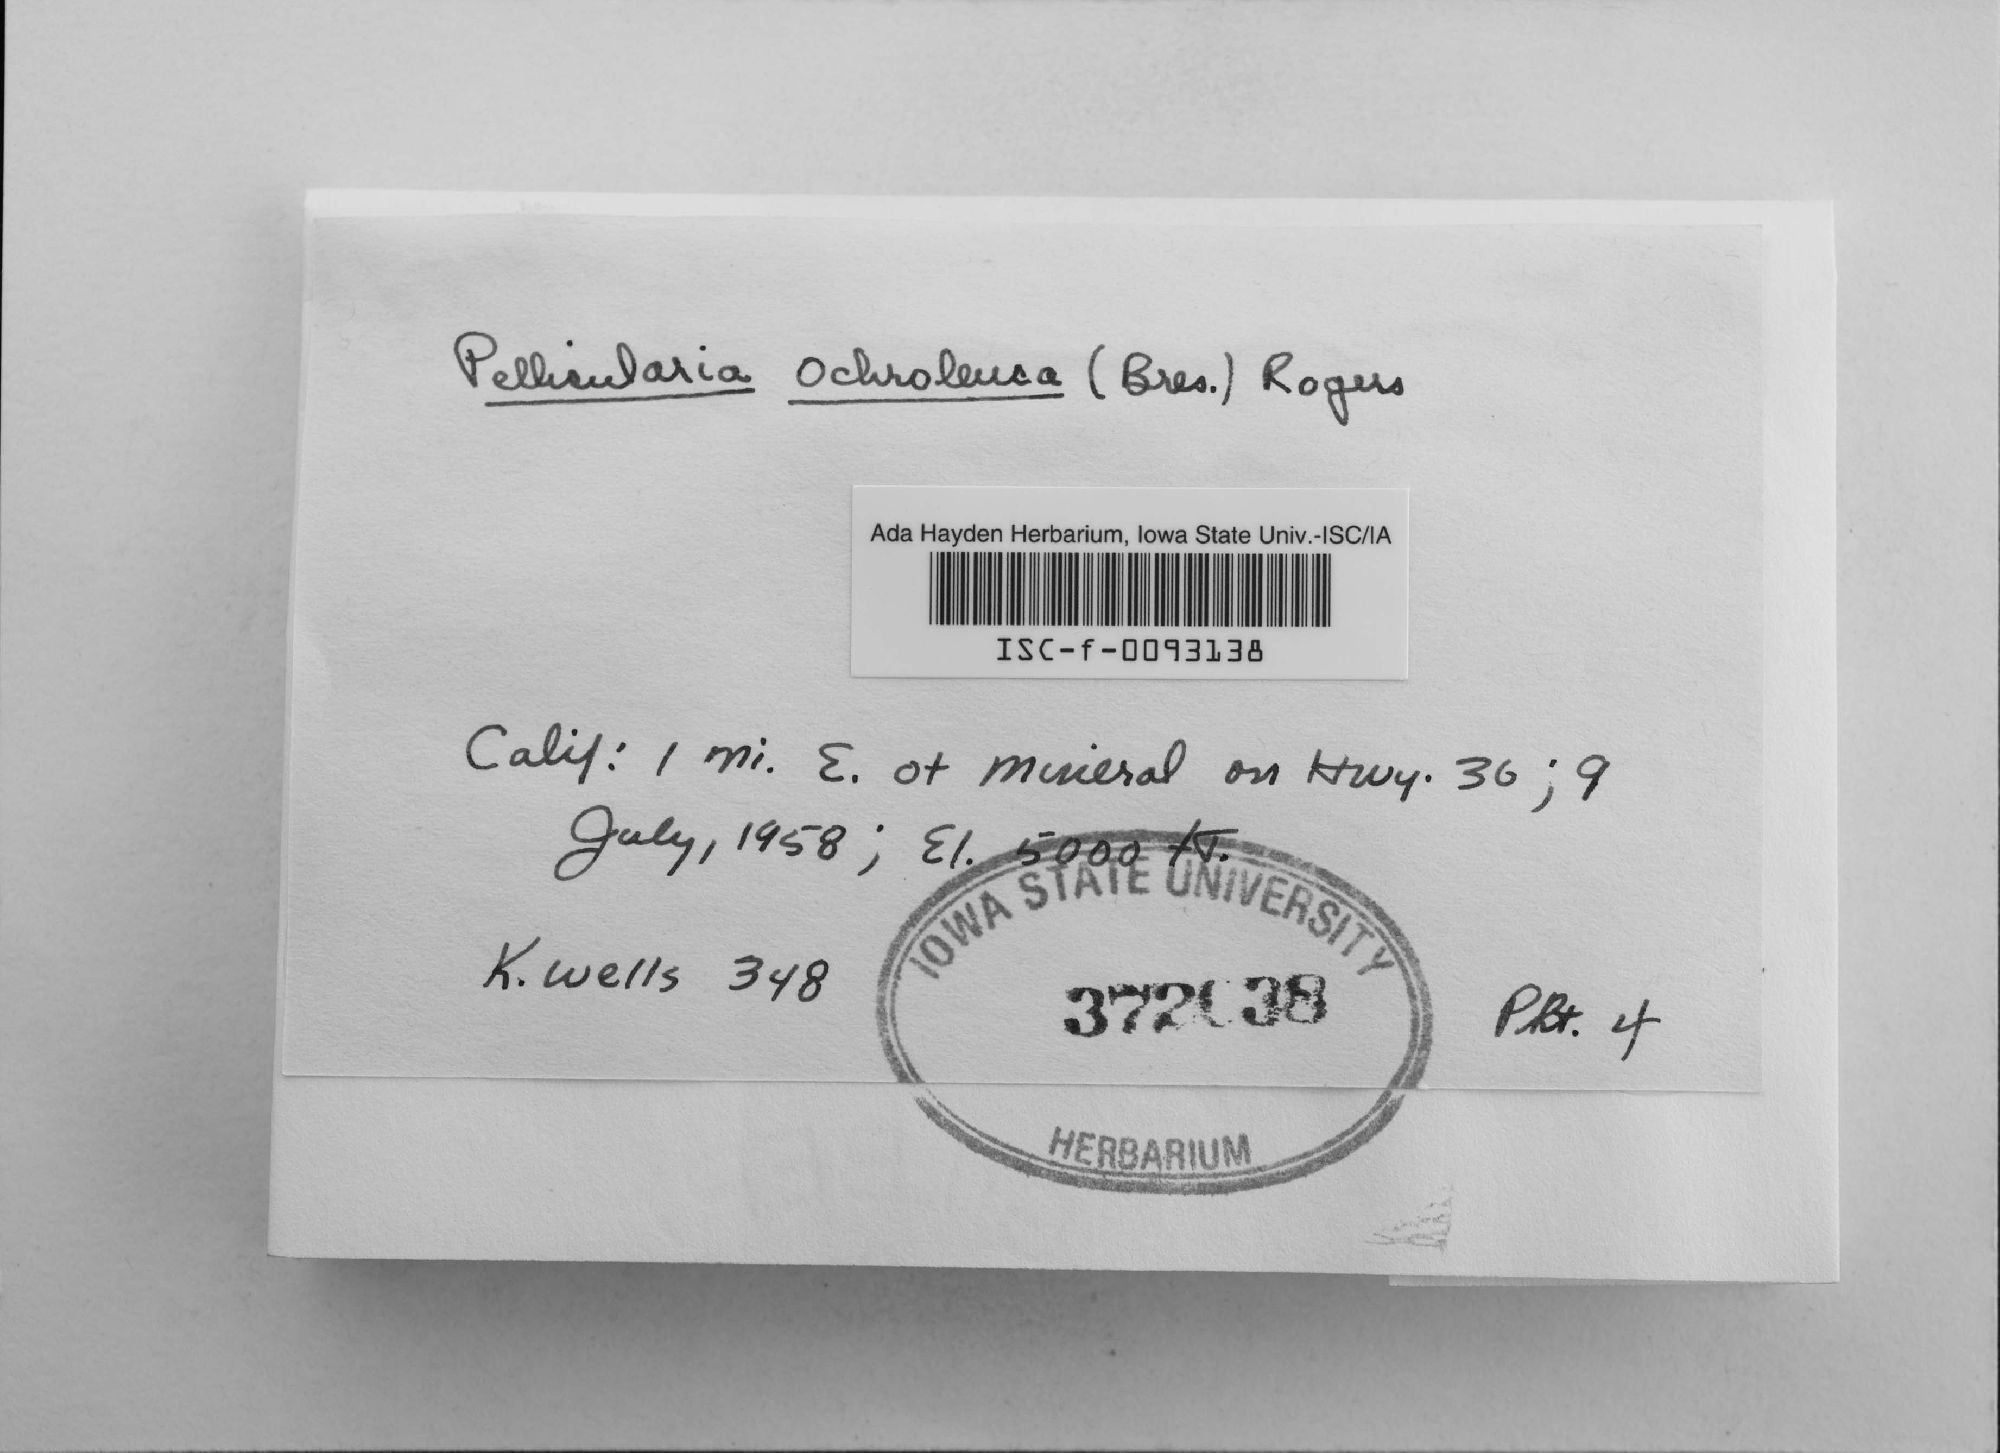 Pellicularia ochroleuca (Bres.) Rogers
Ada Hayden Herbarium, Iowa State Univ.-ISC/IA
ISC-f-0093138
Calif: 1 mi. E. of Mineral on Hwy. 36; 9
July, 1958; El. 5000 ft.
IOWA STATE UNIVERSITY
K. Wells 348
372038
Pkt. 4
HERBARIUM